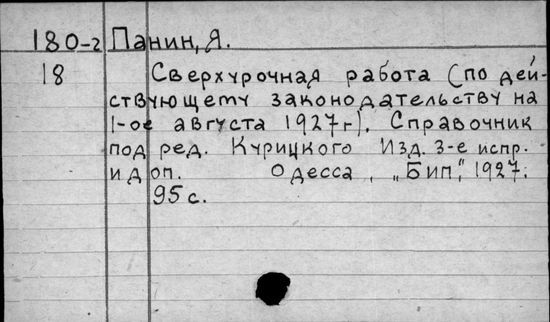 180-г Панин, Я.
18 Сверхурочная работа (по дей-
ствующему законодательству на
1-ое августа 1927 г.). Справочник
под ред. Курицкого Изд. 3-е испр.
и доп. Одесса, „Бип", 1927.
95 с.